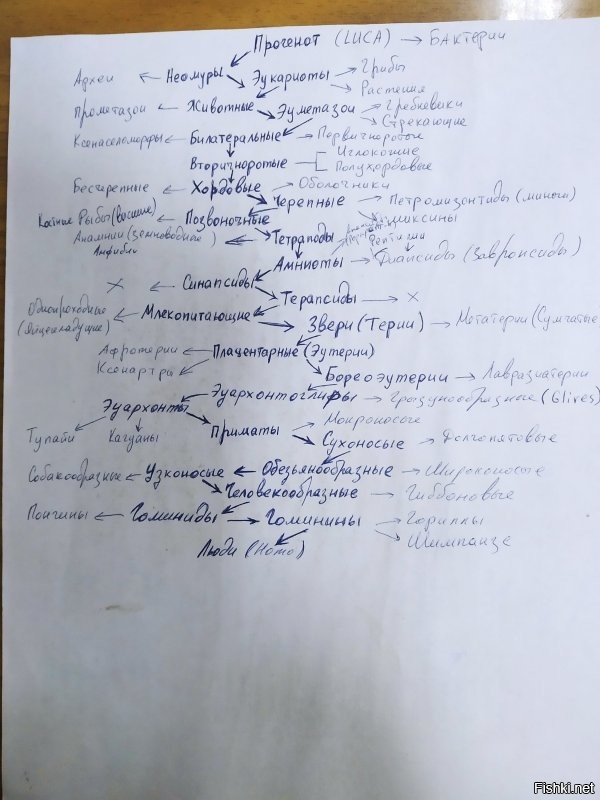 Прогенот (LUCA) → Бактерии
Археи ← Неомуры Эукариоты → Грибы
Растения
прометазои ← Животные Эуметазои → Гребневики
Стрекающие
Ксенацеломорфы ← Билатеральные → Первичноротые
Вторичноротые Иглокожие
Полухордовые
Бесчерепные ← Хордовые → Оболочники
Черепные → Петромизонтиды (миноги)
Костные Рыбы (высшие) ← Позвоночные Миксины
Анамнии (земноводные) ← Тетраподы Рептилии
Амфибии
Амниоты → Диапсиды (Завропсиды)
X ← Синапсиды
Терапсиды → X
Однопроходные ← Млекопитающие
(Яйцекладущие) Звери (Терии) → Метатерии (Сумчатые
Афротерии ← Плацентарные (Эутерии)
Ксенартры Бореоэутерии → Лавразиатерии
Эуархонтоглиры → Грызунообразные (Glires)
Эуархонты Мокроносые
Тупайи Кагуаны Приматы Сухоносые → Долгопятовые
Собакообразные ← Узконосые ← Обезьянообразные → Широконосые
Человекообразные → Гиббоновые
Понгины ← Гоминиды → Гоминины → Гориллы
Люди (Homo) Шимпанзе
Fishki.net